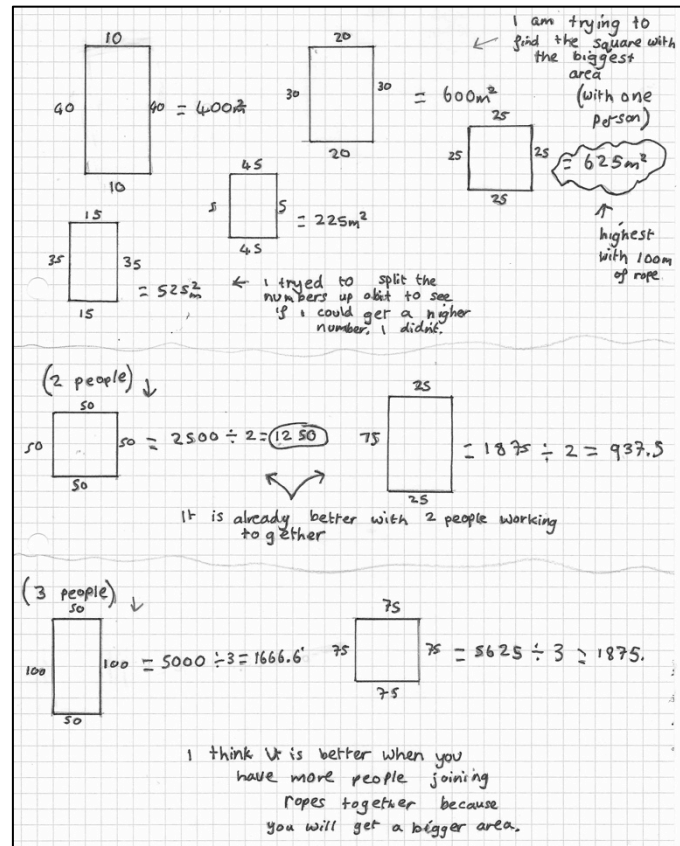 10
40
40 = 400m²
10
20
30
30 = 600m²
20
I am trying to
find the square with
the biggest
area
(with one
person)
25
25
25 = 625m²
25
highest
with 100m
of rope
45
5
5 = 225m²
45
15
35
35 = 525m²
15
I tryed to split the
numbers up abit to see
if i could get a higher
number. I didn't.
(2 people)
50
50
50 = 2500 ÷ 2 = 1250
50
25
75
= 1875 ÷ 2 = 937.5
25
It is already better with 2 people working
together
(3 people)
50
100
100 = 5000 ÷ 3 = 1666.6
50
75
75
75 = 5625 ÷ 3 = 1875.
75
I think it is better when you
have more people joining
ropes together because
you will get a bigger area.